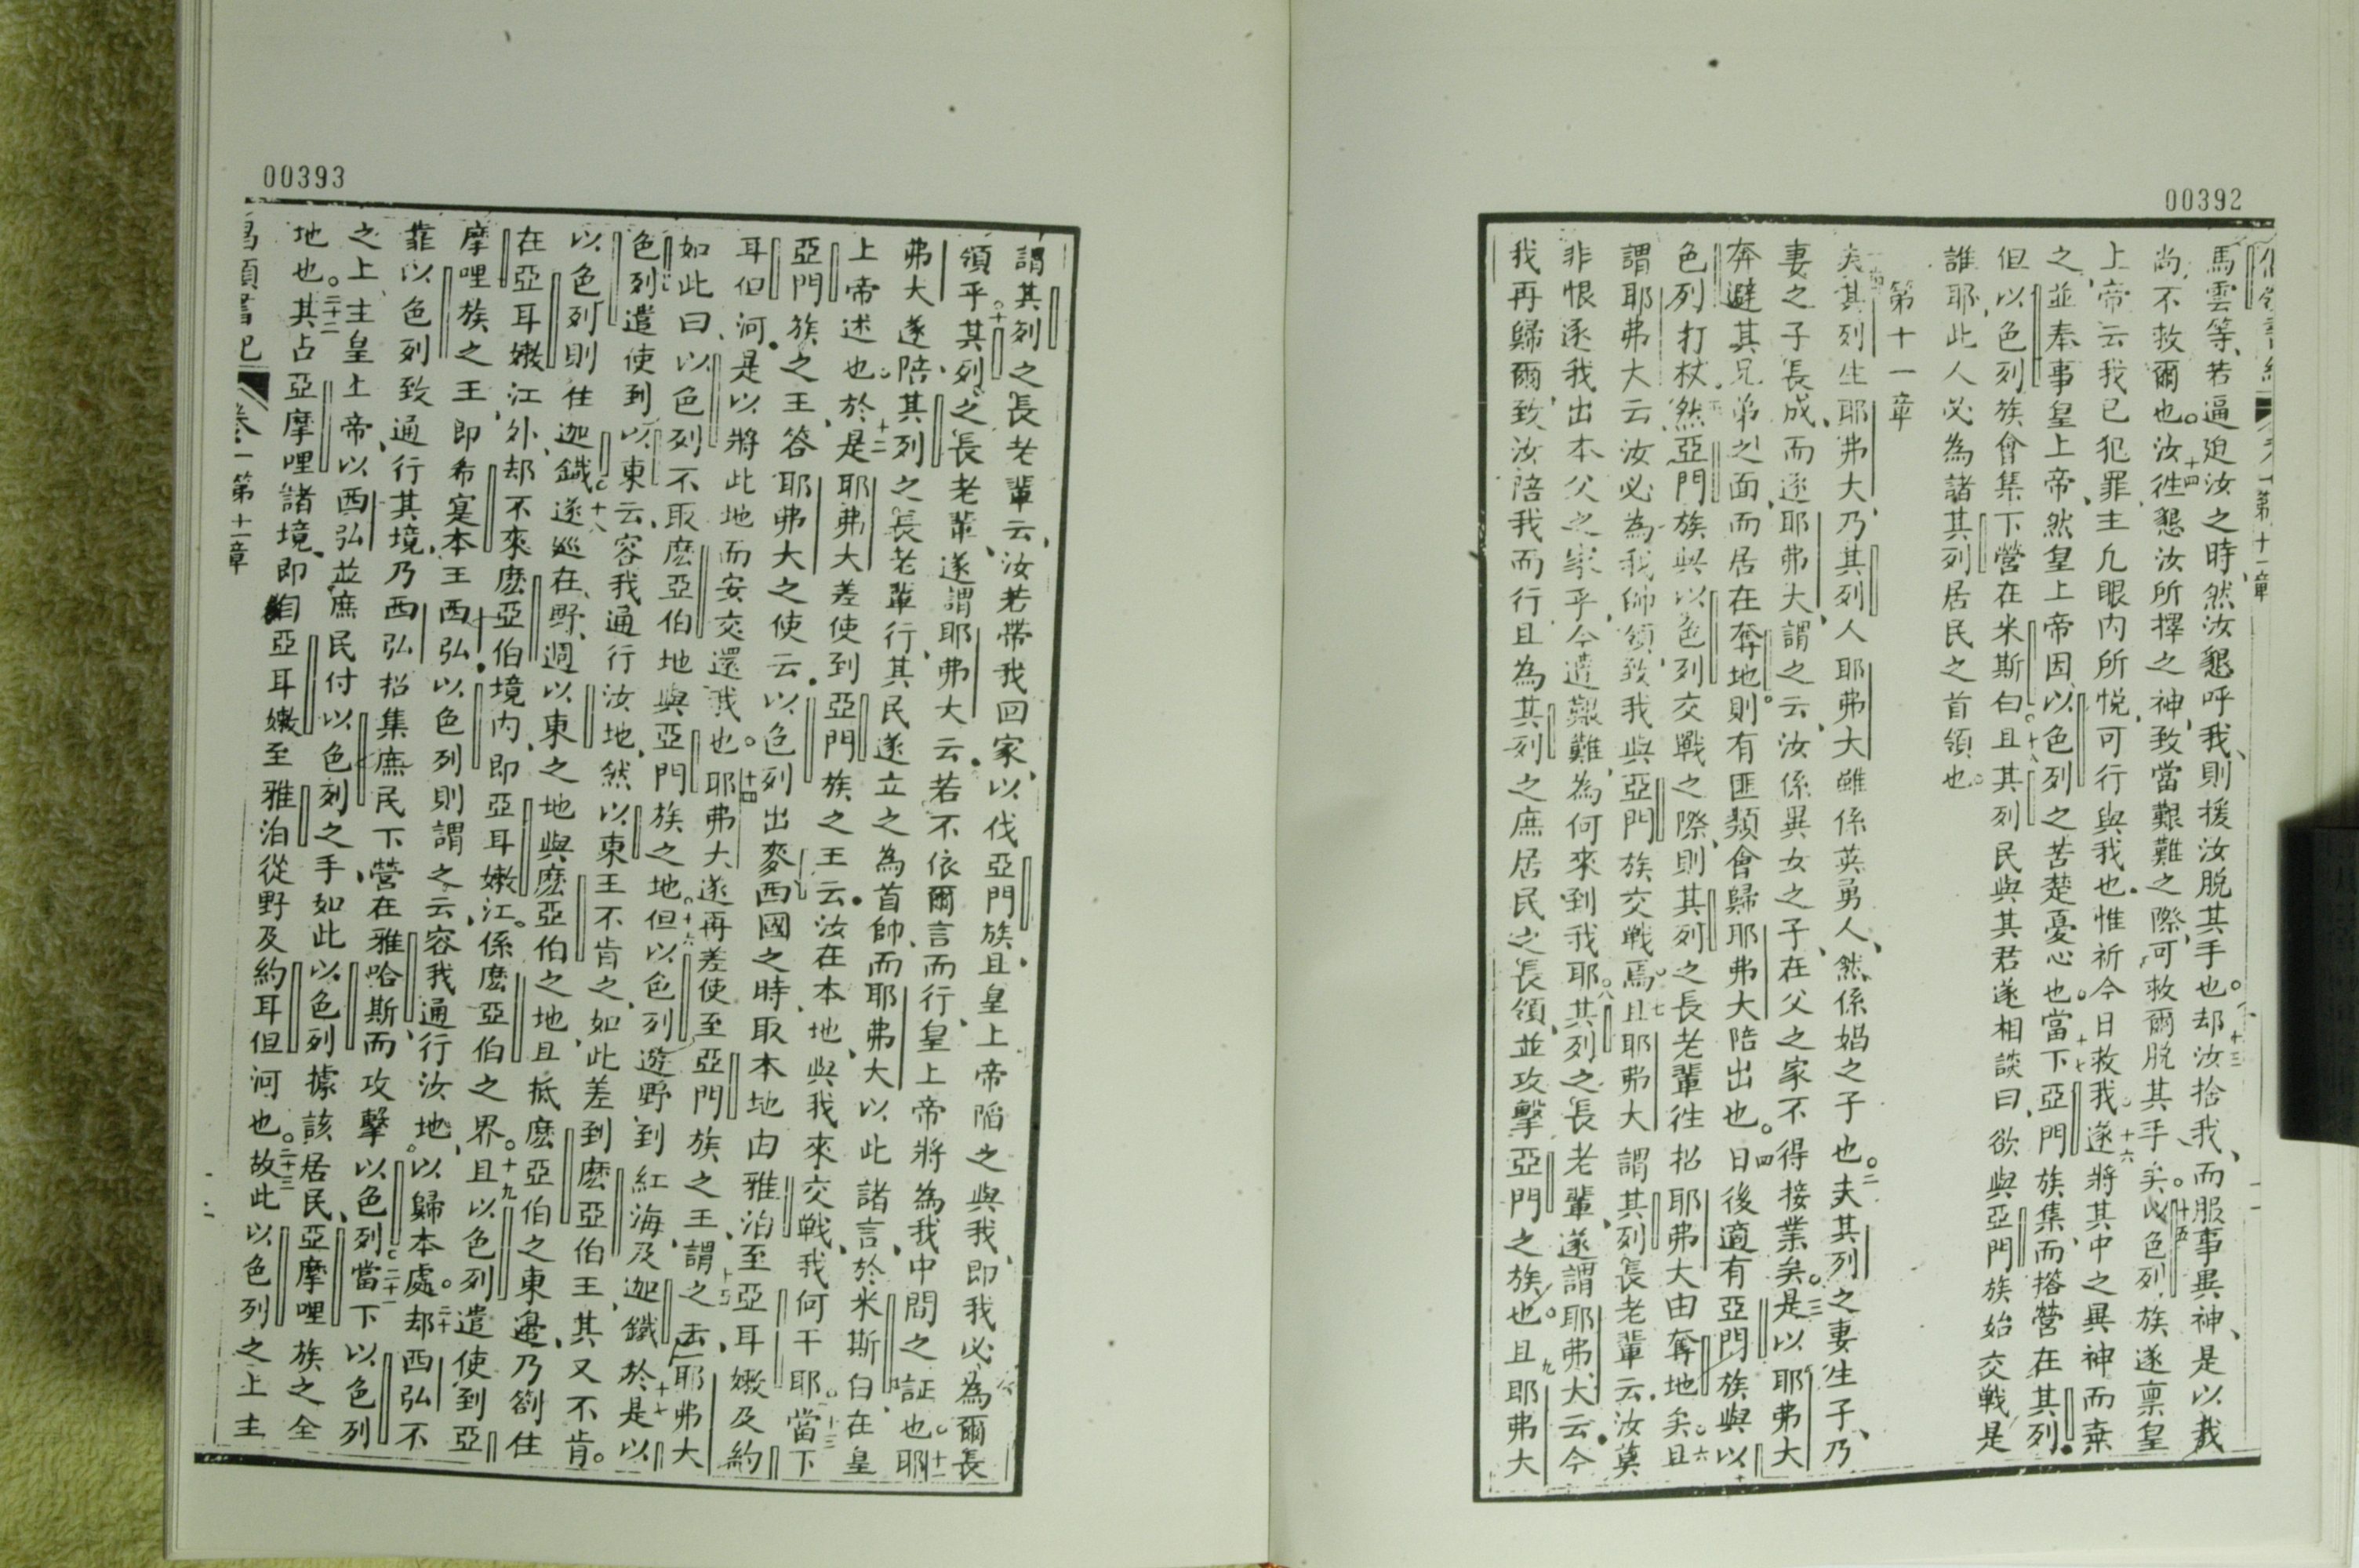 00392
馬雲等、若逼迫汝之時、然汝懇呼我、則援汝脱其手也。十三却汝捨我、而服事異神、是以我
尚不救爾也。十四汝徃懇汝所擇之神、致當艱難之際、可救爾脱其手矣。十五以色列族遂禀皇
上帝云我已犯罪、主凢眼内所悦、可行與我也惟祈今日救我。十六遂將其中之異神而棄
之、並奉事皇上帝、然皇上帝因以色列之苦楚憂心也。十七當下亞門族集、而搭營在其列
但以色列族會集下營在米斯白。十八且其列民與其君遂相談曰、欲與亞門族始交戰是
誰耶、此人必為諸其列居民之首領也。
第十一章
夫其列生耶弗大、乃其列人耶弗大雖係英勇人、然係娼之子也。二夫其列之妻生子、乃
妻之子長成、而逐耶弗大、謂之云、汝係異女之子、在父之家不得接業矣。三是以耶弗大
奔避其兄弟之面、而居在奪地。則有匪類會歸耶弗大陪出也。四日後適有亞門族與以
色列打杖、然亞門族與以色列交戰之際、則其列之長老輩徃招耶弗大由奪地矣。六且
謂耶弗大云汝必為我帥領、致我與亞門族交戰焉。七且耶弗大謂其列長老輩云、汝莫
非恨逐我出本父之家乎、今遭艱難、為何來到我耶。八其列之長老輩、遂謂耶弗大云、今
我再歸爾、致汝陪我而行、且為其列之庶居民之長領、並攻擊亞門之族也。九且耶弗大
第十一章
00393
謂其列之長老輩云、汝若帶我回家、以伐亞門族、且皇上帝陷之與我、即我必為爾長
領乎。十其列之長老輩、遂謂耶弗大云、若不依爾言而行、皇上帝將為我中間之証也。十一耶
弗大遂陪其列之長老輩行、其民遂立之為首帥、而耶弗大以此諸言、於米斯白在皇
上帝述也。十二於是耶弗大差使到亞門族之王云、汝在本地、與我來交戰、我何干耶。十三當下
亞門族之王、答耶弗大之使云、以色列出麥西國之時、取本地由雅泊至亞耳嫩及約
耳但河、是以將此地而安交還我也。十四耶弗大遂再差使至亞門族之王、十五謂之云、耶弗大
如此曰、以色列不取麽亞伯地與亞門族之地。十六但以色列遊野到紅海及迦鐵、十七於是以
色列遣使到以東云、容我通行汝地、然以東王不肯之、如此差到麽亞伯王、其又不肯。
以色列則住迦鐵。十八遂巡在野、週以東之地與麽亞伯之地、且抵麽亞伯之東邉、乃劄住
在亞耳嫩江外、却不來麽亞伯境内、即亞耳嫩江。係麽亞伯之界。十九且以色列遣使到亞
摩哩族之王、即希寔本王西弘、以色列則謂之云、容我通行汝地、以歸本處。二十却西弘不
靠以色列致通行其境、乃西弘招集庶民下營在雅哈斯、而攻擊以色列。二十一當下以色列
之上主皇上帝、以西弘並庶民付以色列之手、如此以色列據該居民、亞摩哩族之全
地也。二十二其占亞摩哩諸境、即自亞耳嫩至雅泊、從野及約耳但河也。二十三故此以色列之上主
書 卷一第十一章